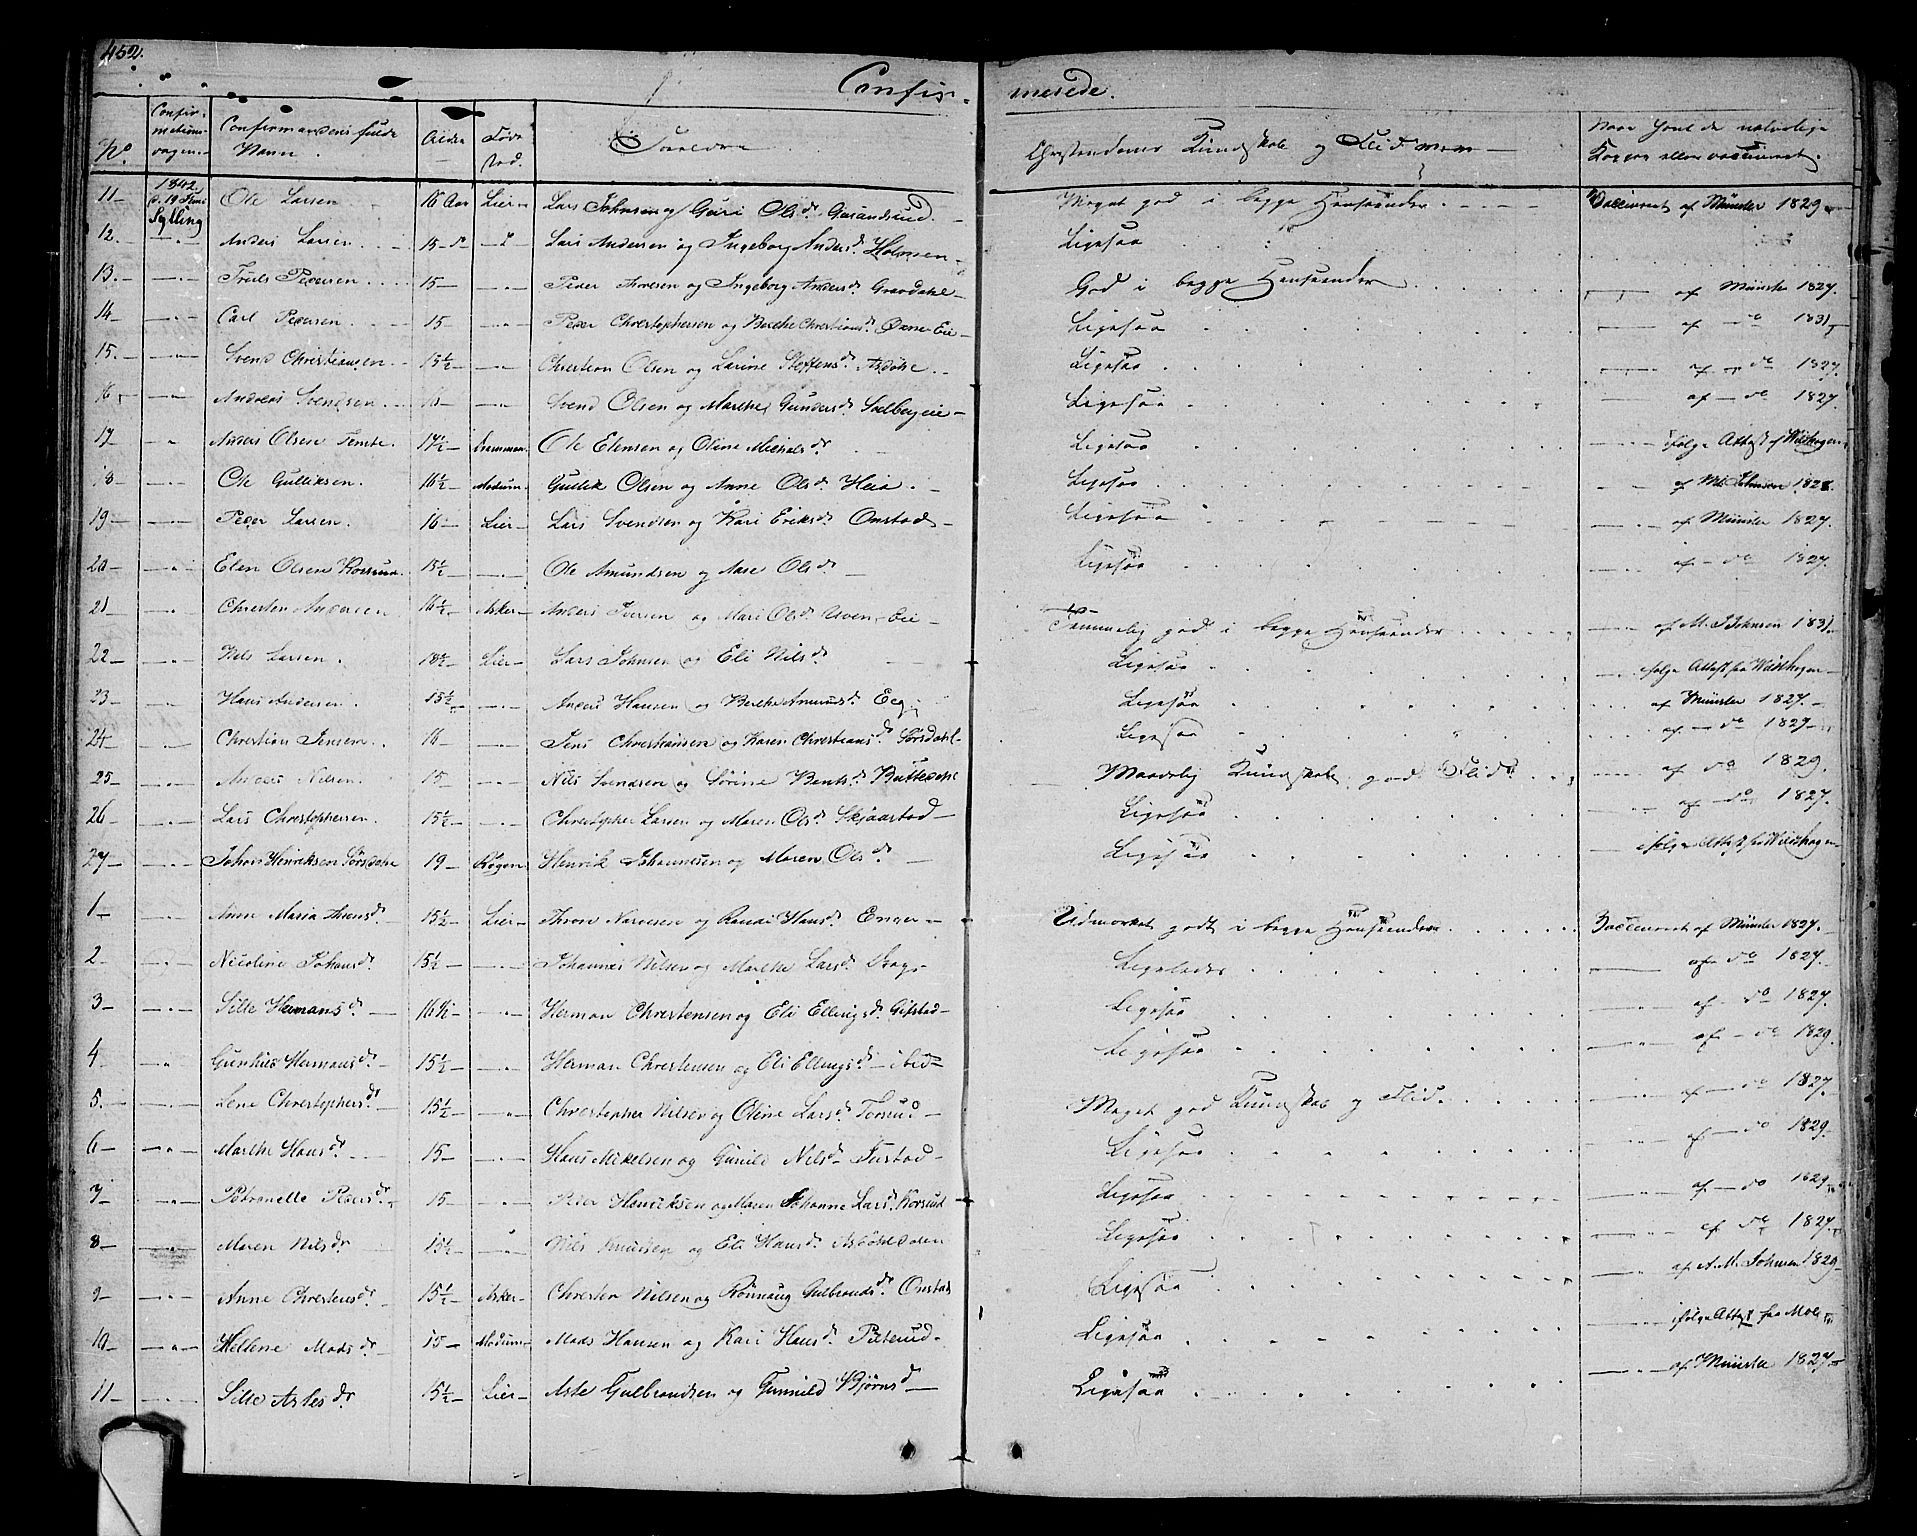 452.
Confir- merede.
No. Confirmationsdagen. Confirmandens fulde Navn. Alder Føde Sted. Forældre Christendoms Kundskab og Flid Naar havt de naturlige Kopper eller vaccineret.
11— 1842 d. 19 Juni Sylling Ole Larsen 16 Aar Lier— Lars Johnsen og Guri Olsdr. Meget god i begge Henseender Vaccineret af Münster 1829.
12.— Anders Larsen 15 Lars Andersen og Ingeborg Andersdr. Holmen Ligesaa
13— Truls Pedersen 15— Peder Thoresen og Ingeborg Andersdr. Gravdahl God i begge Henseender af Münster 1827.
14— Carl Pedersen 15— Peder Christophersen og Berthe Christiansdr. Eie— Ligesaa af do 1831
15.— Svend Christiansen 15½— Christian Olsen og Larine Steffensdr. Asdøhl Ligesaa af do 1827.
16— Anders Svendsen Svend Olsen og Marthe Gundersdr. Solbergeie— Ligesaa af do 1827.
17— Anders Olsen 17½— Drammen Ole Ellensen og Oline Michelsdr. Ligesaa ifølge Attest
18— Ole Gulliksen. 16½— Modum— Gullik Olsen og Anne Olsdr. Heia. Ligesaa af Johnsen 1828.
19— Peder Larsen. 16— Lier— Lars Svendsen og Kari Eriksdr. Onstad— Ligesaa af Münster 1827.
20— Elen Olsen Korsrud 15½— Ole Amundsen og Aase Olsdr. Ligesaa af do 1827.
21— Christen Andersen 16½— Asker— Anders Iversen og Mari Olsdr. Eie— Temmelig god i begge Henseender af M. Johnsen 1831
22— Nils Larsen. 18½— Lier— Lars Johnsen og Eli Nilsdr. Ligesaa ifølge Attest fra
23— Hans Andersen 15½— Anders Hansen og Berthe Amundsdr. Eeg Ligesaa af Münster 1827.
24— Christian Jensen. 16— Jens Christiansen og Karen Christiansdr. Sørsdahl Ligesaa af do 1827.
25— Anders Nilsen 15— Nils Svendsen og Sørine Bentsdr. Buttedahl Maadelig Kundskab, god Flid af do 1829.
26— Lars Christophersen. 15½— Christopher Larsen og Maren Olsdr. Skjærstad— Ligesaa af do 1827.
27— Johan Henriksen Sørsdahl 19— Røgen Henrik Johannesen og Maren Olsdr. Ligesaa ifølge Attest fra
1— Anne Maria 15½— Lier— Thron Narvesen og Randi Hansdr. Enger— Udmærket godt i begge Henseender Vaccineret af Münster 1827.
2— Nicoline Johansdr. 15½— Johannes Nilsen og Marthe Larsdr. Ligeledes af do 1827.
3— Sille Hermansdr. 16½— Herman Christensen og Eli Ellingsdr. Gifstad— Ligesaa af do 1827.
4— Gunhild Hermansdr. 15½— Herman Christensen og Eli Ellingsdr. ibid— Ligesaa af do 1829.
5.— Lene Christophersdr. 15½— Christopher Nilsen og Oline Larsdr. Torsrud— Meget god Kundskab og Flid. af do 1827.
6— Marthe Hansdr. 15— Hans Mikelsen og Gunild Nilsd— Justad— Ligesaa af do 1829.
7— Petronelle Pedersdr. 15— Peder Henriksen og Maren Johanne Larsd. Korsrud Ligesaa af do 1829
8— Maren Nilsdr. 15½— Nils Knudsen og Eli Hansdr. Ligesaa af do 1827.
9— Anne Christensdr. 15½— Asker— Christen Nilsen og Rønnaug Gulbrandsdr. Onstad Ligesaa af A. M. Johnsen 1829
10— Hellene Madsdr. 15— Modum— Mads Hansen og Kari Hansdr. Putterud. Ligesaa ifølge Attest fra Moe
11— Sille Aslesdr. 15½— Lier— Asle Gulbrandsen og Gunnild Bjørnsd— Ligesaa af Münster 1827—